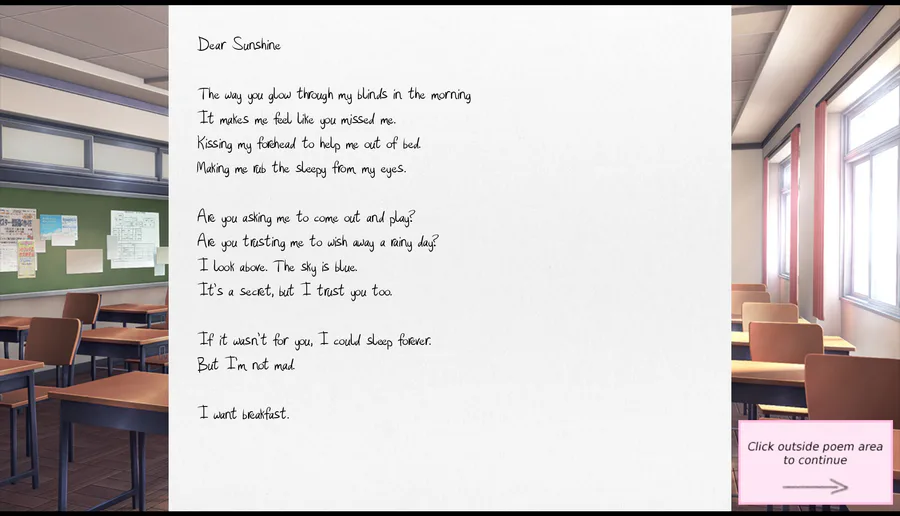 Dear Sunshine
The way you glow through my blinds in the morning
It makes me feel like you missed me.
Kissing my forehead to help me out of bed.
Making me rub the sleepy from my eyes.
Are you asking me to come out and play?
Are you trusting me to wish away a rainy day?
I look above. The sky is blue.
It's a secret, but I trust you too.
If it wasn't for you, I could sleep forever.
But I'm not mad.
I want breakfast.
Click outside poem area
to continue